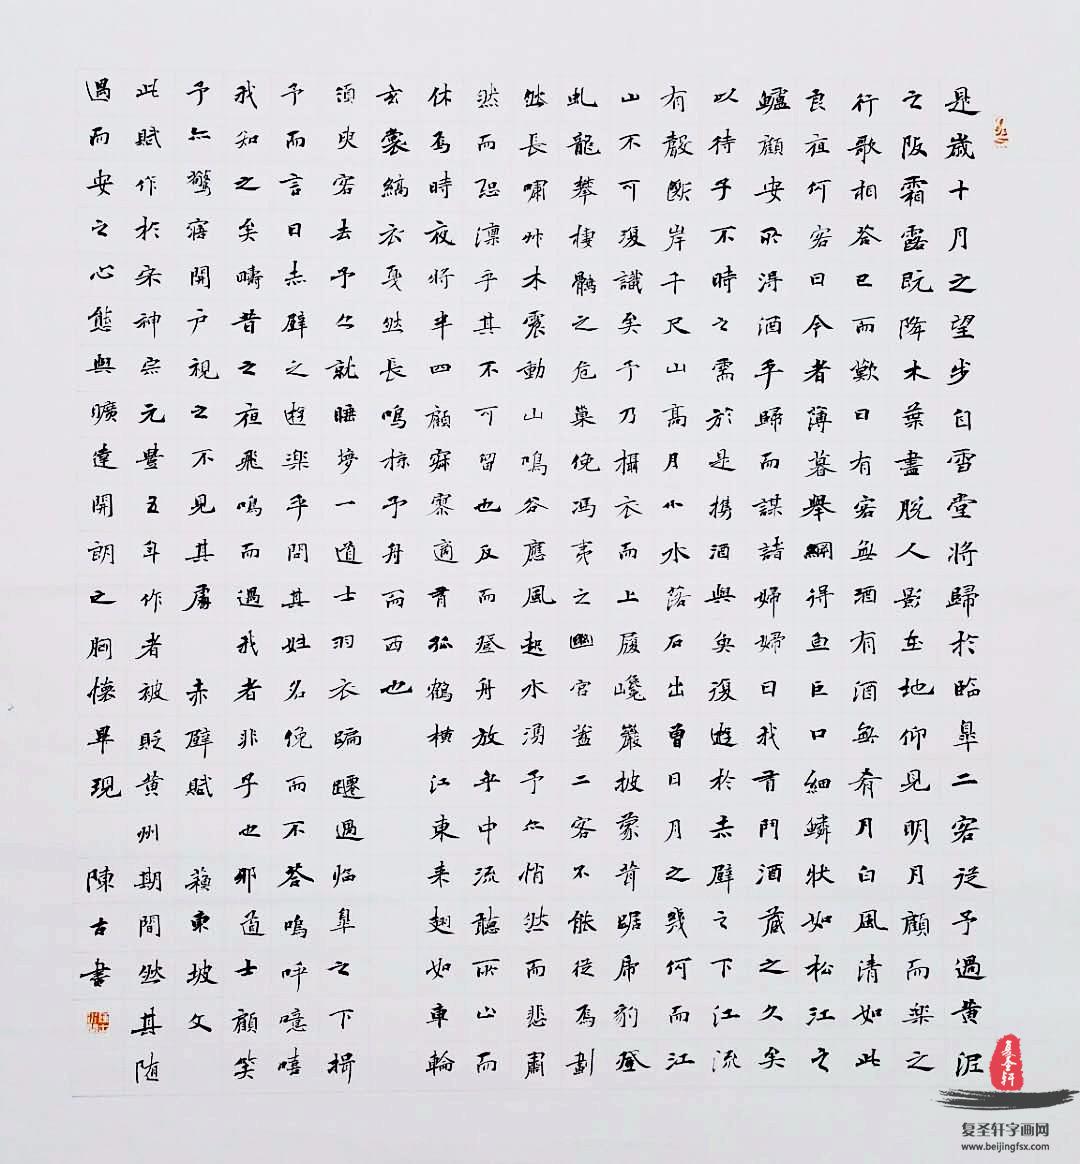 是歲十月之望步自雪堂將歸於臨皋二客從予過黃泥
之阪霜露既降木葉盡脫人影在地仰見明月顧而樂之
行歌相答已而歎曰有客無酒有酒無肴月白風清如此
良夜何客曰今者薄暮舉網得魚巨口細鱗狀如松江之
鱸顧安所得酒乎歸而謀諸婦婦曰我有斗酒藏之久矣
以待子不時之需於是攜酒與魚復遊於赤壁之下江流
有聲斷岸千尺山高月小水落石出曾日月之幾何而江
山不可復識矣予乃攝衣而上履巉巖披蒙茸踞虎豹登
虬龍攀棲鶻之危巢俛馮夷之幽宮蓋二客不能從焉劃
然長嘯艸木震動山鳴谷應風起水湧予亦悄然而悲肅
然而恐凛乎其不可留也反而登舟放乎中流聽所止而
休焉時夜將半四顧寂寥適有孤鶴橫江東來翅如車輪
玄裳縞衣戛然長鳴掠予舟而西也
須臾客去予亦就睡夢一道士羽衣蹁躚過临皋之下揖
予而言曰赤壁之遊樂乎問其姓名俛而不荅嗚呼噫嘻
我知之矣疇昔之夜飛鳴而過我者非子也邪道士顧笑
予亦驚寤開户視之不見其處 赤壁賦 蘇東坡文
此賦作於宋神宗元豐五年作者被貶黄州期間然其随
遇而安之心態與曠達開朗之胸懷畢現 陳古書
复圣轩
复圣轩字画网
www.beijingfsx.com